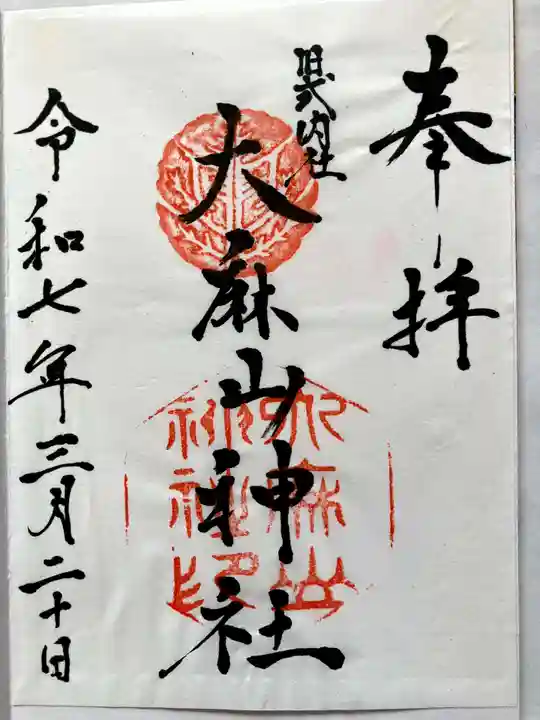 奉拝
旧式内社
大麻山神社
令和七年三月二十日
大麻山
神社印